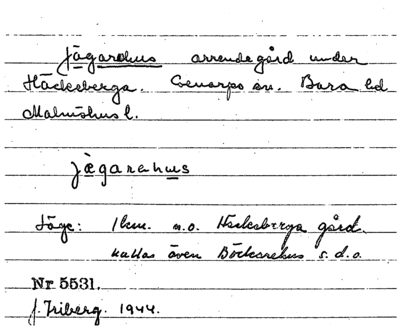 Jägarehus arrendegård under
Häckeberga. Genarps sn. Bara hd
Malmöhus l.
jægarehus
Läge: 1 km. n.o. Häckeberga gård.
kallas även Böckarehus s.d.o.
Nr 5531.
J. Friberg. 1944.